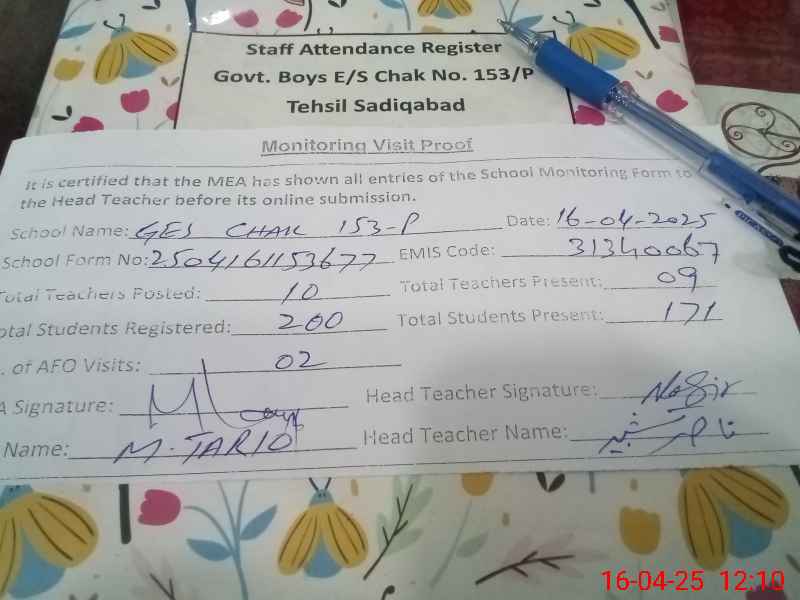 Staff Attendance Register
Govt. Boys E/S Chak No. 153/P
Tehsil Sadiqabad
Monitoring Visit Proof
It is certified that the MEA has shown all entries of the School Monitoring Form to
the Head Teacher before its online submission.
School Name: GES CHAK 153-P Date: 16-04-2025
School Form No: 2504161153677 EMIS Code: 31340067
Total Teachers Posted: 10 Total Teachers Present: 09
otal Students Registered: 200 Total Students Present: 171
. of AFO Visits: 02
A Signature: Head Teacher Signature: Nasir
Name: M. TARIQ Head Teacher Name: ناصر بشیر
16-04-25 12:10